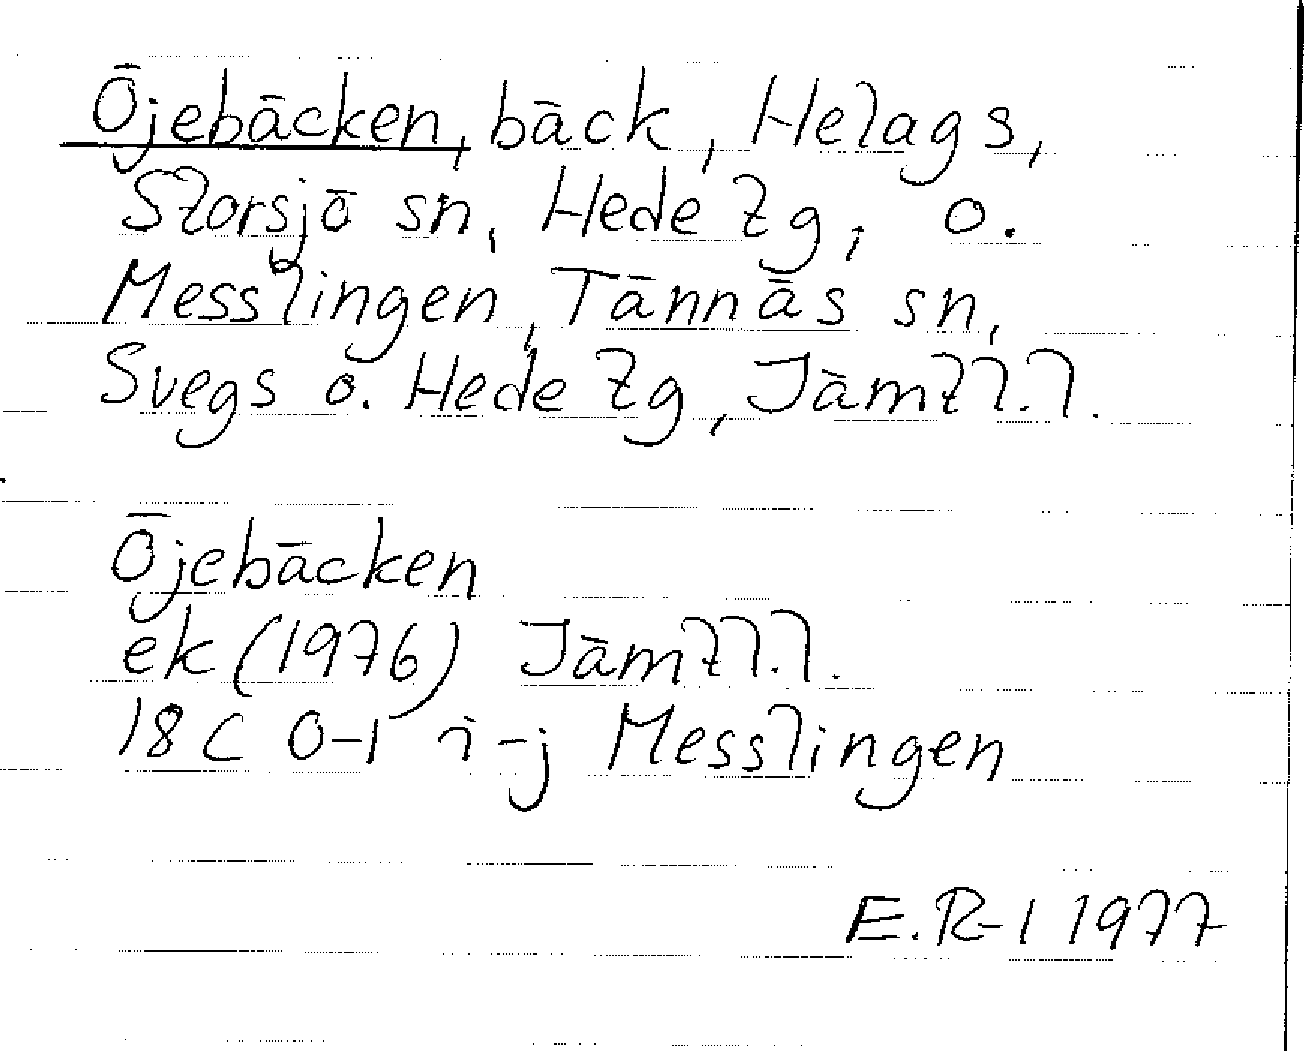 Öjebäcken, bäck, Helags,
Storsjö sn, Hede tg, o.
Messlingen, Tännäs sn,
Svegs o. Hede tg, Jämtl.l.
Öjebäcken
ek (1976) Jämtl.l.
18 C 0-1 i-j Messlingen
E.R-l 1977